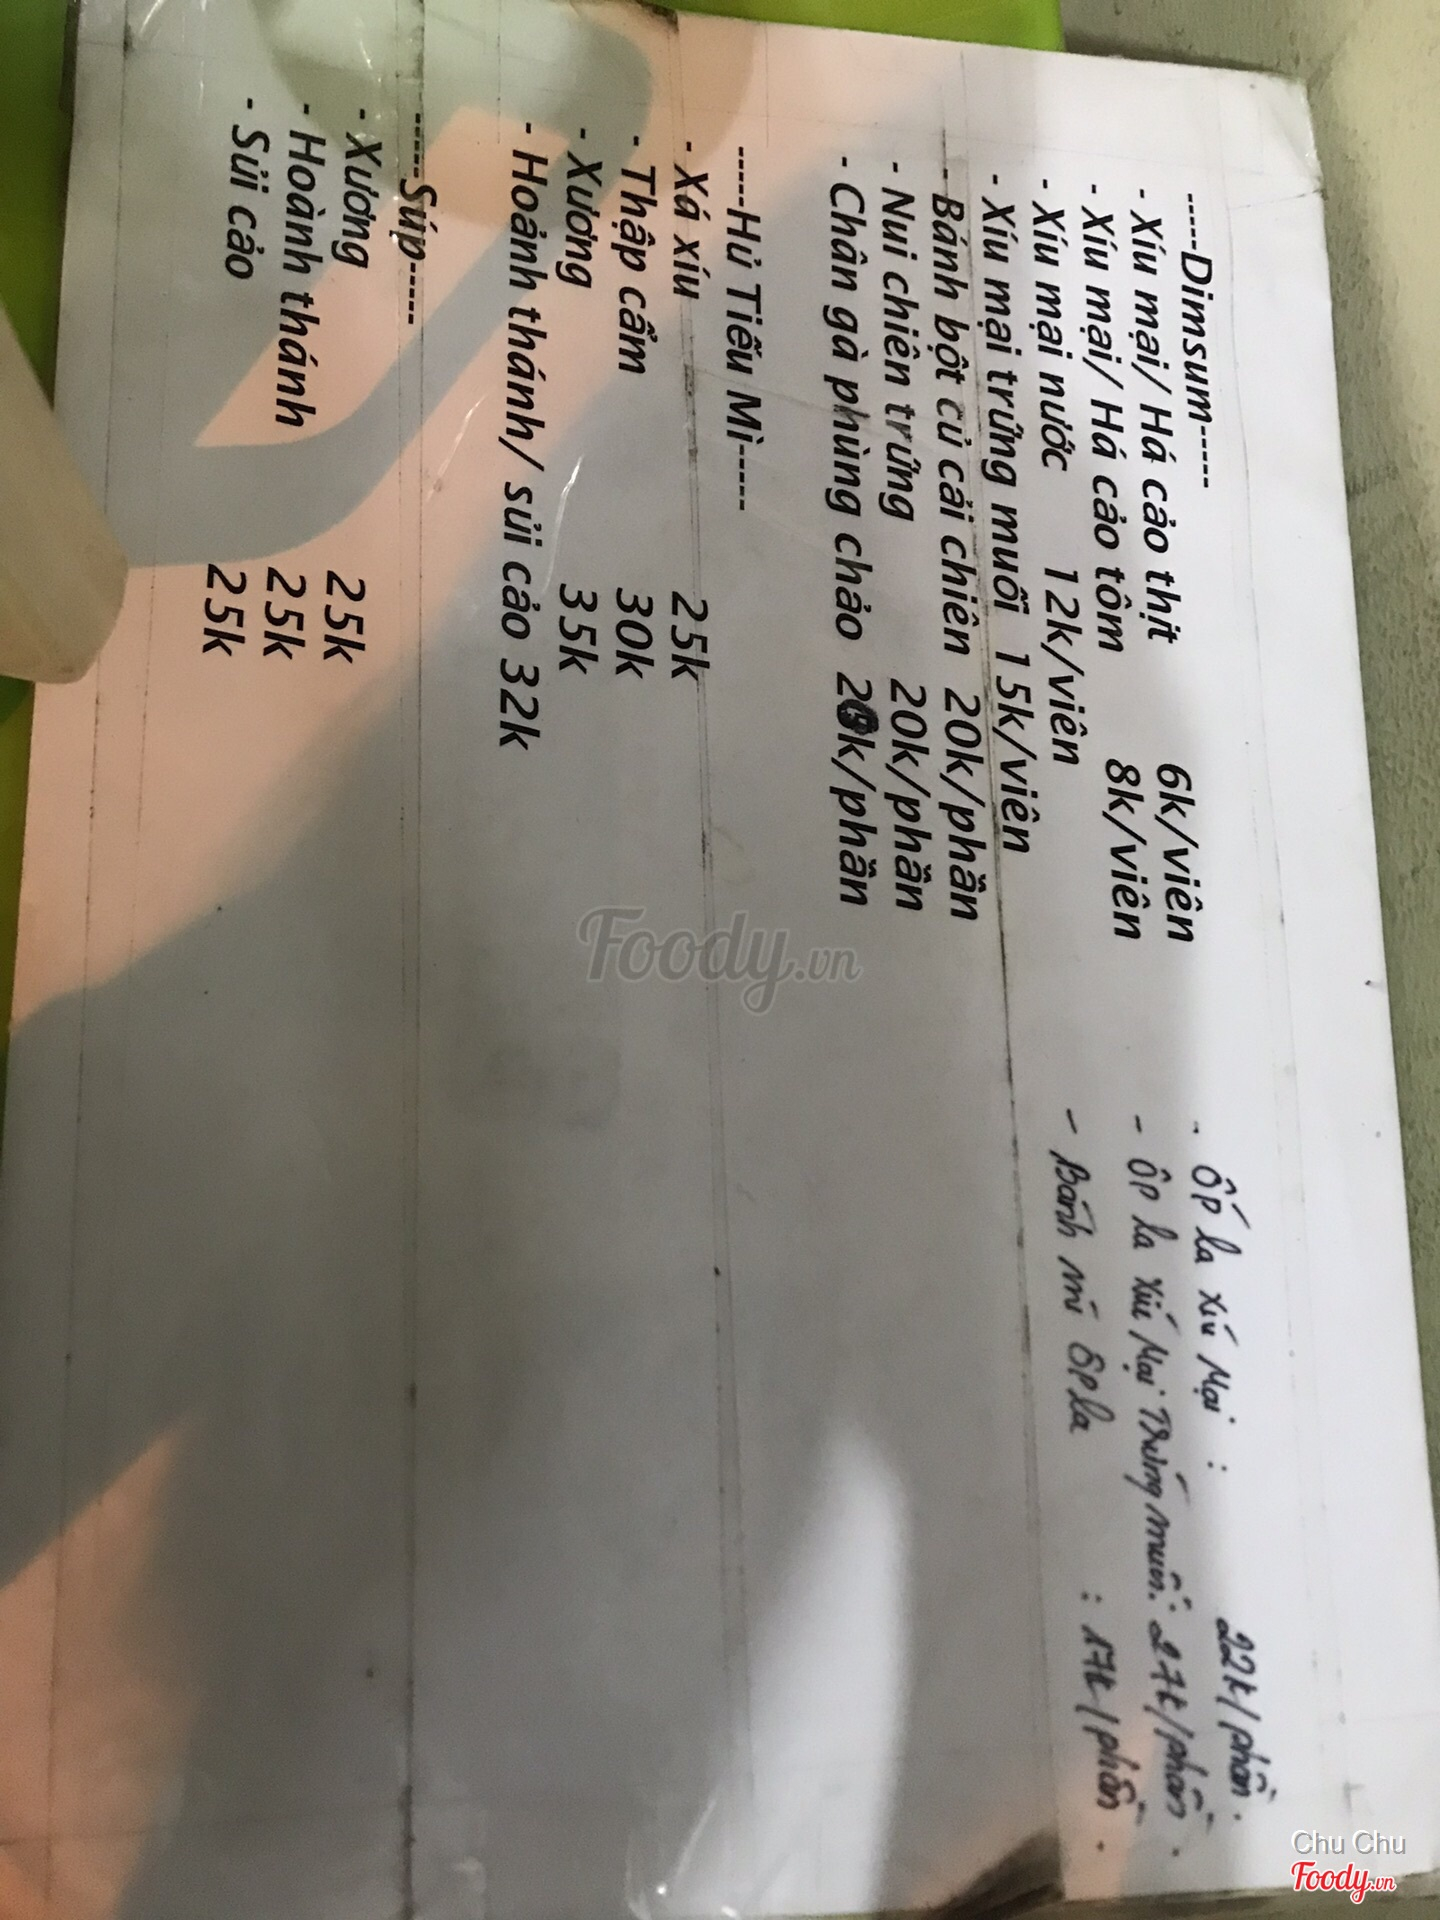 -----Dimsum-----
- Xíu mại/ Há cảo thịt 6k/viên
- Xíu mại/ Há cảo tôm 8k/viên
- Xíu mại nước 12k/viên
- Xíu mại trứng muối 15k/viên
- Bánh bột củ cải chiên 20k/phần
- Nui chiên trứng 20k/phần
- Chân gà phùng chảo k/phần
-----Hủ Tiếu Mì-----
- Xá xíu 25k
- Thập cẩm 30k
- Xương 35k
- Hoành thánh/ sủi cảo 32k
-----Súp-----
- Xương 25k
- Hoành thánh 25k
- Sủi cảo 25k
- Ốp la xíu Mại : 22k/phần.
- Ốp la xíu Mại Trứng muối: 27k/phần.
- Bánh mì ốp la : 17k/phần.
Foody.vn
Chu Chu
Foody.vn